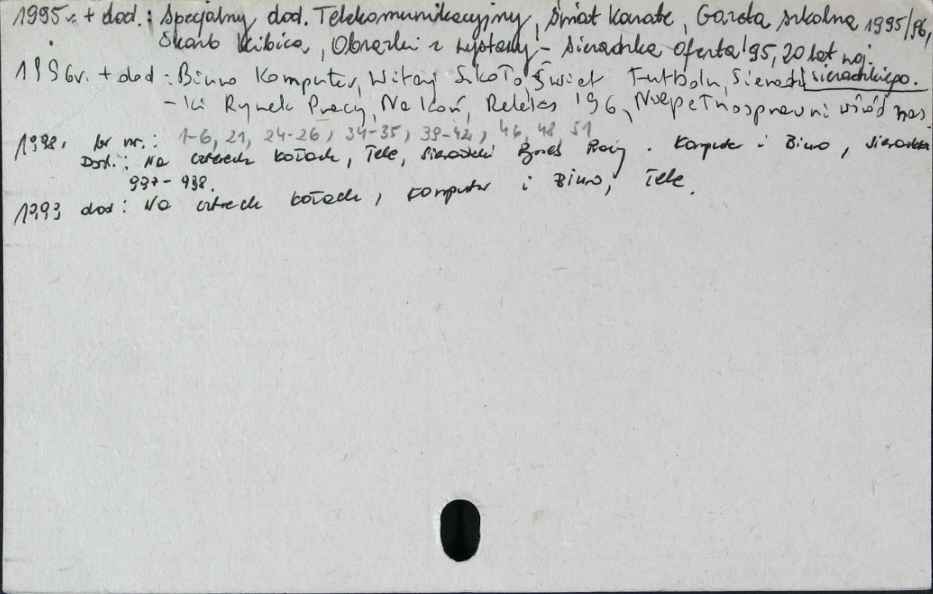 1995r. + dod.: Specjalny dod. Telekomunikacyjny, Świat Karate, Gazeta szkolna 1995/96,
Skarb kibica, Obrazki z wystawy - Sieradzka Oferta '95, 20 lat woj.
sieradzkiego.
1996r. + dod: Biuro Komputer, Witaj Szkoło, Świat Futbolu, Sieradz
-ki Rynek Pracy, Na koń, Relaks '96, Niepełnosprawni wśród nas.
1998. br nr.: 1-6, 21, 24-26, 34-35, 39-42, 46, 48, 51
Dod.: Na czterech kołach, Tele, Sieradzki . Komputer i Biuro, Sieradzkie
937-938.
1993 dod: Na czterech kołach, Komputer i Biuro, Tele.